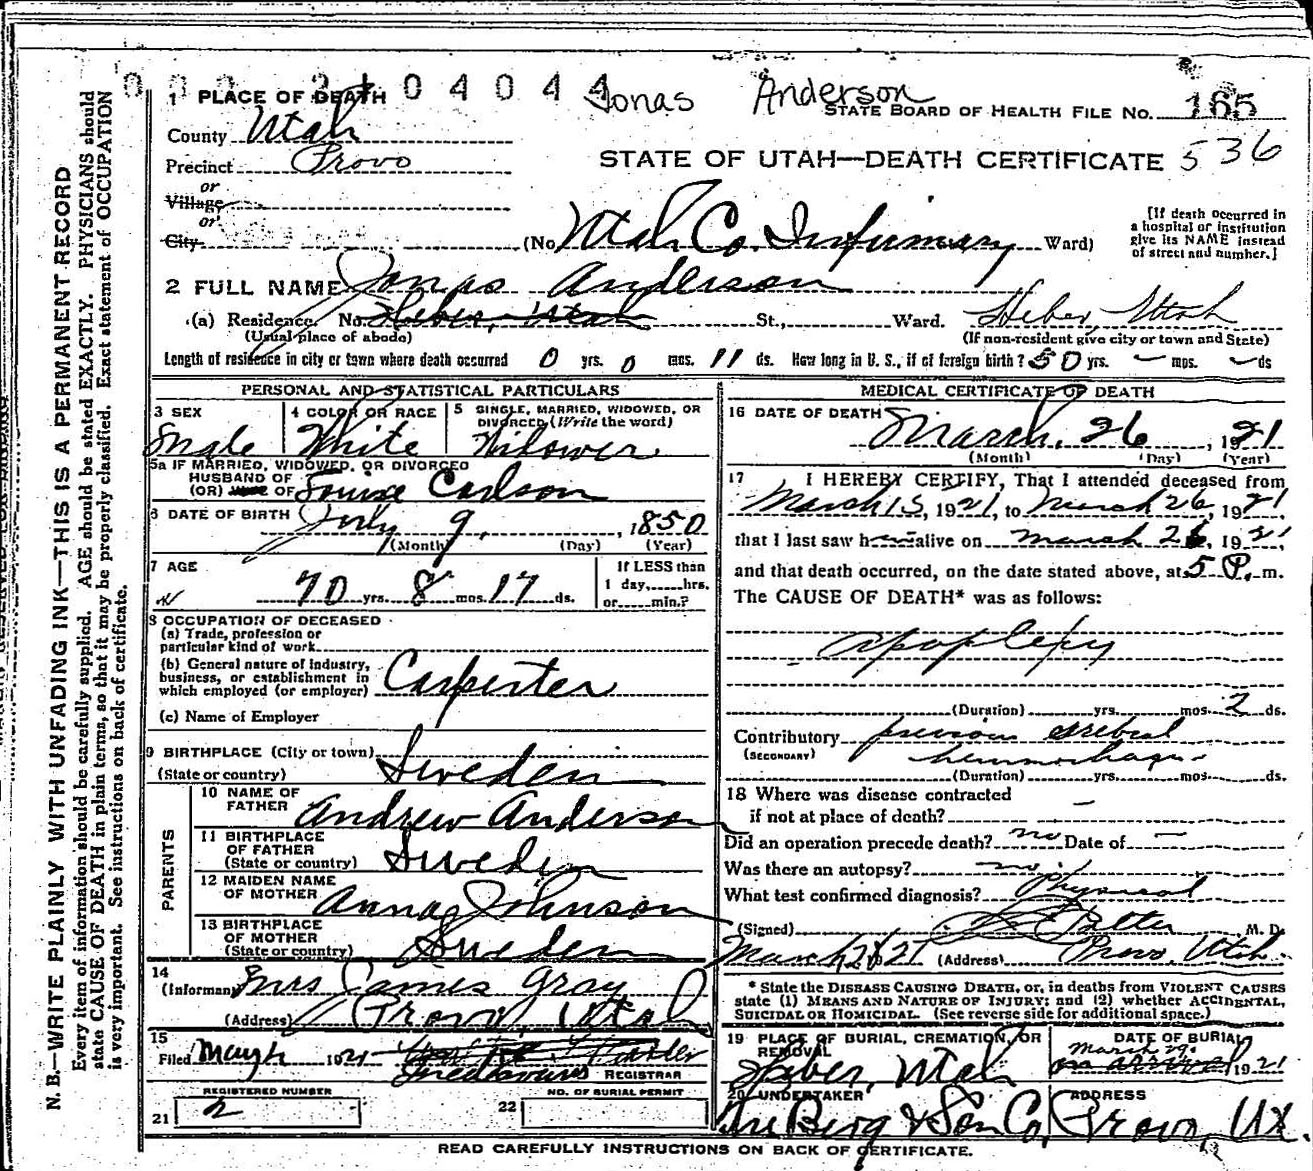 04044 Jonas Anderson
1 PLACE OF DEATH
STATE BOARD OF HEALTH FILE No. 165
County Utah
536
Precinct Provo
STATE OF UTAH—DEATH CERTIFICATE
or
Village
or
City (No. Utah Co. Infirmary Ward)
[If death occurred in a hospital or institution give its NAME instead of street and number.]
2 FULL NAME Jonas Anderson
(a) Residence. No. Heber, Utah St., Ward. Heber, Utah
(Usual place of abode) (If non-resident give city or town and State)
Length of residence in city or town where death occurred 0 yrs. 0 mos. 11 ds. How long in U. S., if of foreign birth? 50 yrs. — mos. — ds
PERSONAL AND STATISTICAL PARTICULARS
3 SEX Male
4 COLOR OR RACE White
5 SINGLE, MARRIED, WIDOWED, OR DIVORCED (Write the word) Widower
5a IF MARRIED, WIDOWED, OR DIVORCED
HUSBAND OF
(OR) WIFE OF Louise Carlson
6 DATE OF BIRTH July 9, 1850
(Month) (Day) (Year)
7 AGE 70 yrs. 8 mos. 17 ds.
If LESS than
1 day,......hrs.
or......min.?
8 OCCUPATION OF DECEASED
(a) Trade, profession or
particular kind of work
(b) General nature of industry,
business, or establishment in
which employed (or employer) Carpenter
(c) Name of Employer
9 BIRTHPLACE (City or town)
(State or country) Sweden
PARENTS
10 NAME OF
FATHER Andrew Anderson
11 BIRTHPLACE
OF FATHER
(State or country) Sweden
12 MAIDEN NAME
OF MOTHER Anna Johnson
13 BIRTHPLACE
OF MOTHER
(State or country) Sweden
14
(Informant) Mrs James Gray
(Address) Provo, Utah
15
Filed 1921
REGISTRAR
REGISTERED NUMBER
21 2
NO. OF BURIAL PERMIT
22
MEDICAL CERTIFICATE OF DEATH
16 DATE OF DEATH March 26, 1921
(Month) (Day) (Year)
17 I HEREBY CERTIFY, That I attended deceased from
March 15, 1921, to March 26, 1921,
that I last saw h alive on March 26, 1921,
and that death occurred, on the date stated above, at 5 P. m.
The CAUSE OF DEATH* was as follows:
apoplexy
(Duration) yrs. mos. 2 ds.
Contributory previous cerebral
(SECONDARY) hemorrhage
(Duration) yrs. mos. ds.
18 Where was disease contracted
if not at place of death? —
Did an operation precede death? no Date of —
Was there an autopsy? no
What test confirmed diagnosis? Physical
(Signed) M. D.
March 28 1921 (Address) Provo, Utah.
* State the DISEASE CAUSING DEATH, or, in deaths from VIOLENT CAUSES
state (1) MEANS AND NATURE OF INJURY; and (2) whether ACCIDENTAL,
SUICIDAL OR HOMICIDAL. (See reverse side for additional space.)
19 PLACE OF BURIAL, CREMATION, OR
REMOVAL
Heber, Utah
DATE OF BURIAL
March 29. 1921
20 UNDERTAKER
Berg & Son Co,
ADDRESS
Provo, Ut.
READ CAREFULLY INSTRUCTIONS ON BACK OF CERTIFICATE.
N. B.—WRITE PLAINLY WITH UNFADING INK—THIS IS A PERMANENT RECORD
Every item of information should be carefully supplied. AGE should be stated EXACTLY. PHYSICIANS should
state CAUSE OF DEATH in plain terms, so that it may be properly classified. Exact statement of OCCUPATION
is very important. See instructions on back of certificate.